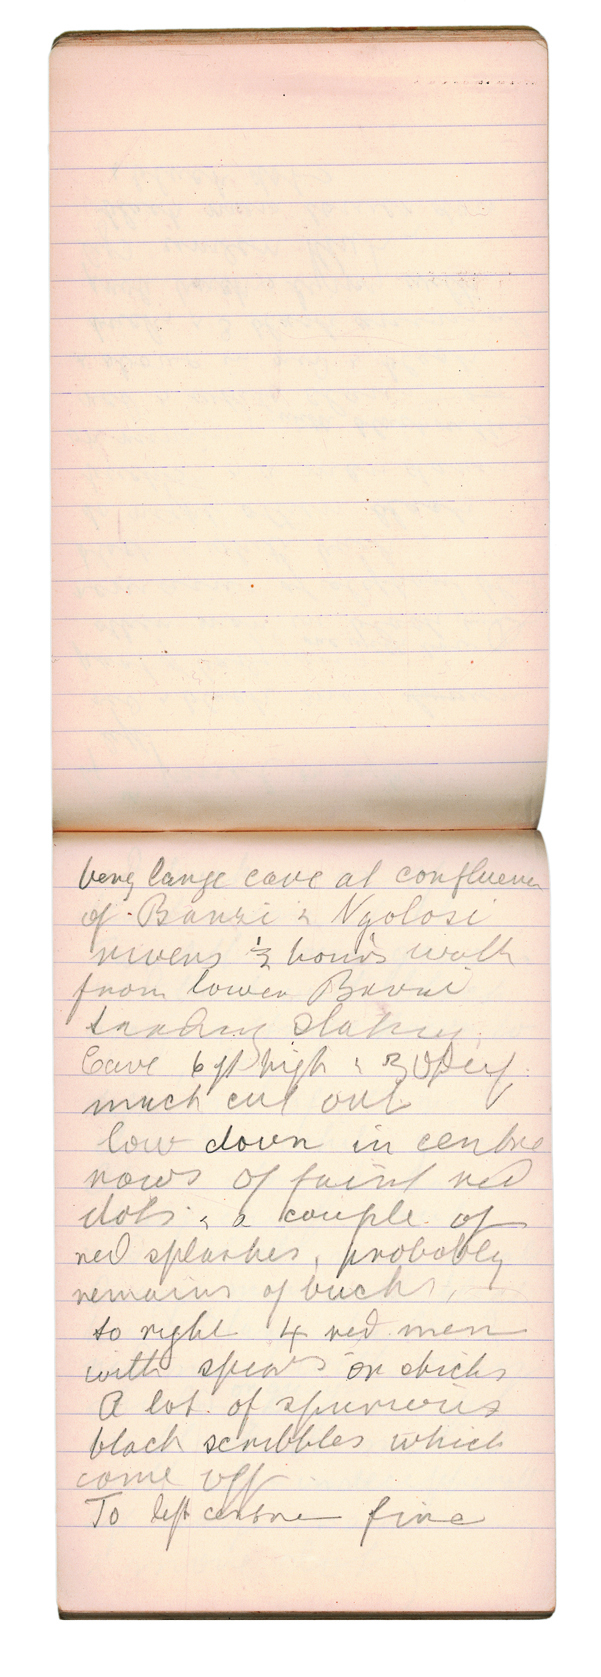 Very large cave at confluence
of Banzi & Ngolosi
rivers ½ hours walk
from lower Bavui
trading station
Cave 6 ft high &
much cut out
low down in centre
rows of faint red
dots & a couple of
red splashes, probably
remains of bucks,
to right 4 red men
with spears or sticks
A lot of spurious
black scribbles which
come off
To left centre fine